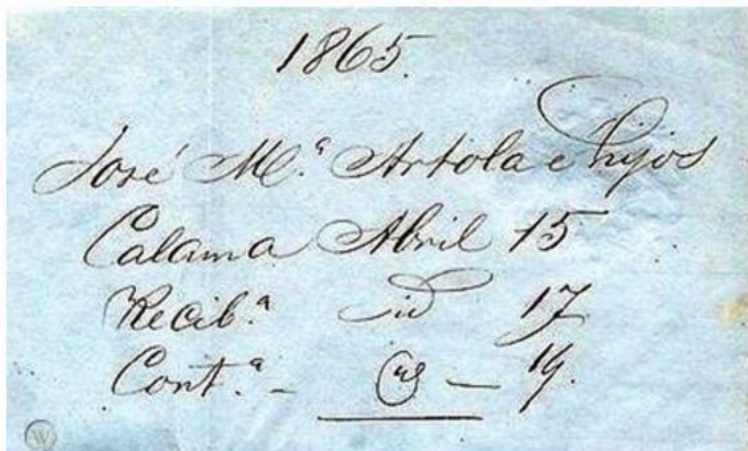 1865.
José M.ª Artola e hijos
Calama Abril 15
Recib.ª id 17
Cont.ª - — 19.
W